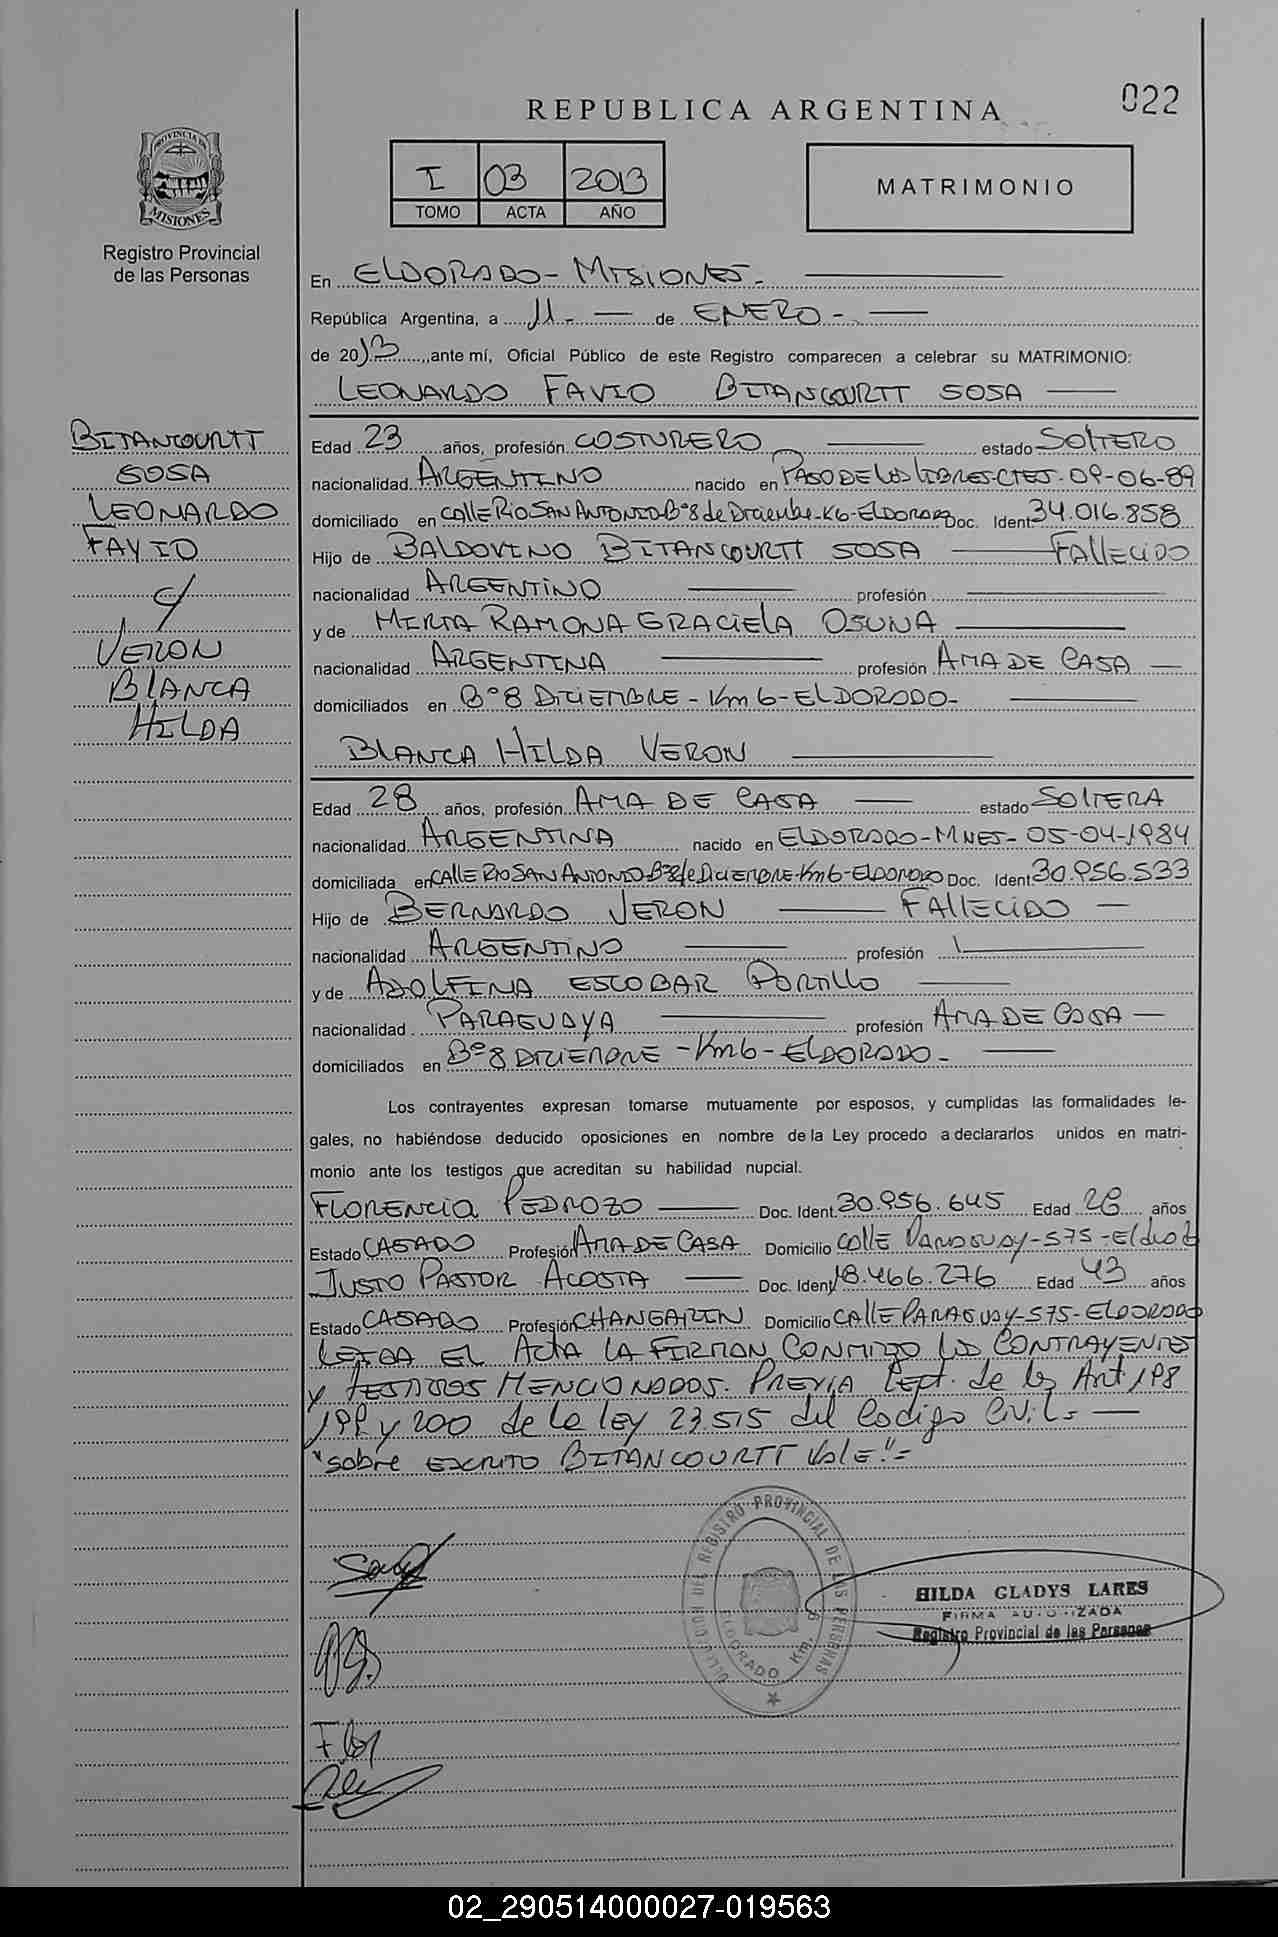 022
REPUBLICA ARGENTINA
I 03 2013
TOMO ACTA AÑO
MATRIMONIO
PROVINCIA DE
MISIONES
Registro Provincial
de las Personas
En ELDORADO - MISIONES -
República Argentina, a 11 - de ENERO -
de 2013, ante mí, Oficial Público de este Registro comparecen a celebrar su MATRIMONIO:
LEONARDO FAVIO BITANCOURTT SOSA
BITANCOURTT
SOSA
LEONARDO
FAVIO
y
VERON
BLANCA
HILDA
Edad 23 años, profesión COSTURERO estado SOLTERO
nacionalidad ARGENTINO nacido en PASO DE LOS LIBRES-CTES-09-06-89
domiciliado en CALLE RIO SAN ANTONIO Bº8 de Diciembre-K6-ELDORADO Doc. Ident 34.016.858
Hijo de BALDOVINO BITANCOURTT SOSA FALLECIDO
nacionalidad ARGENTINO profesión
y de MIRTA RAMONA GRACIELA OSUNA
nacionalidad ARGENTINA profesión AMA DE CASA
domiciliados en Bº8 DICIEMBRE - Km 6 - ELDORADO -
BLANCA HILDA VERON
Edad 28 años, profesión AMA DE CASA estado SOLTERA
nacionalidad ARGENTINA nacido en ELDORADO-MNES-05-04-1984
domiciliada en CALLE RIO SAN ANTONIO Bº8 de DICIEMBRE-Km6-ELDORADO Doc. Ident 30.956.533
Hijo de BERNARDO VERON FALLECIDO
nacionalidad ARGENTINO profesión
y de ADOLFINA ESCOBAR PORTILLO
nacionalidad PARAGUAYA profesión AMA DE CASA
domiciliados en Bº8 DICIEMBRE - Km6 - ELDORADO -
Los contrayentes expresan tomarse mutuamente por esposos, y cumplidas las formalidades le-
gales, no habiéndose deducido oposiciones en nombre de la Ley procedo a declararlos unidos en matri-
monio ante los testigos que acreditan su habilidad nupcial.
FLORENCIA PEDROZO Doc. Ident. 30.956.645 Edad 28 años
Estado CASADO Profesión AMA DE CASA Domicilio CALLE PARAGUAY-575-
JUSTO PASTOR ACOSTA Doc. Ident 18.466.276 Edad 43 años
Estado CASADO Profesión CHANGARIN Domicilio CALLE PARAGUAY-575-ELDORADO
LEIDA EL ACTA LA FIRMAN CONMIGO LOS CONTRAYENTES
Y TESTIGOS MENCIONADOS. PREVIA Lept. de los Art 198
199 y 200 de la ley 23.515 del Codigo Civil. -
"sobre EXCRITO BITANCOURTT Vale" =
DELEGACION DEL REGISTRO PROVINCIAL DE LAS PERSONAS
ELDORADO Km. 6
HILDA GLADYS LARES
FIRMA AUTORIZADA
Registro Provincial de las Personas
Flor
02_290514000027-019563